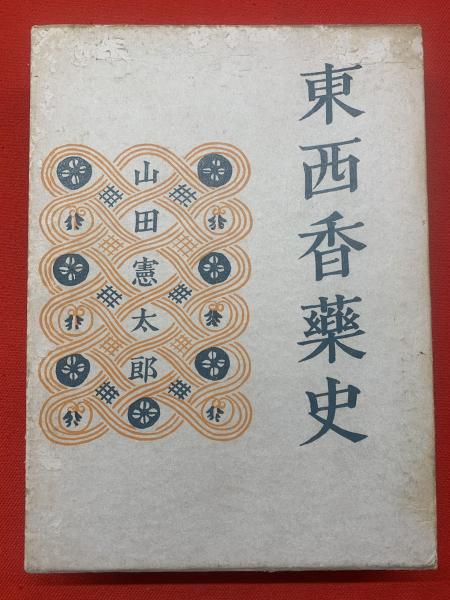 東西香藥史
山田憲太郎